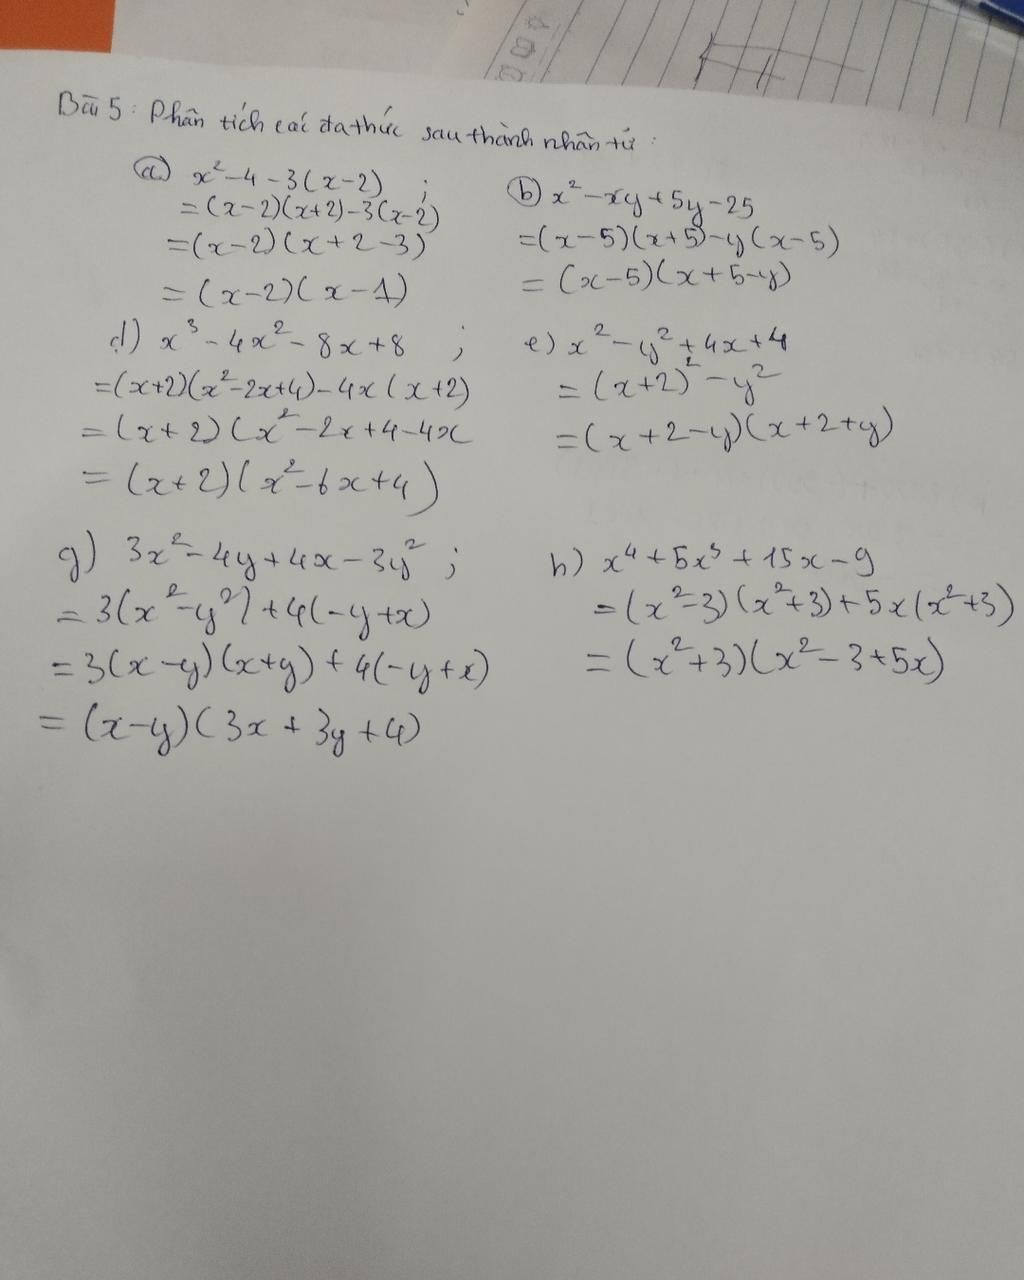 Bài 5: Phân tích các đa thức sau thành nhân tử:
a) x² - 4 - 3(x-2) ;
= (x-2)(x+2)-3(x-2)
= (x-2)(x+2-3)
= (x-2)(x-1)
b) x² - xy + 5y - 25
= (x-5)(x+5) - y(x-5)
= (x-5)(x+5-y)
d) x³ - 4x² - 8x + 8 ;
= (x+2)(x²-2x+4) - 4x(x+2)
= (x+2)(x² - 2x + 4 - 4x
= (x+2)(x² - 6x + 4)
e) x² - y² + 4x + 4
= (x+2)² - y²
= (x+2-y)(x+2+y)
g) 3x² - 4y + 4x - 3y² ;
= 3(x² - y²) + 4(-y+x)
= 3(x-y)(x+y) + 4(-y+x)
= (x-y)(3x + 3y + 4)
h) x⁴ + 5x³ + 15x - 9
= (x²-3)(x²+3) + 5x(x²+3)
= (x²+3)(x² - 3 + 5x)